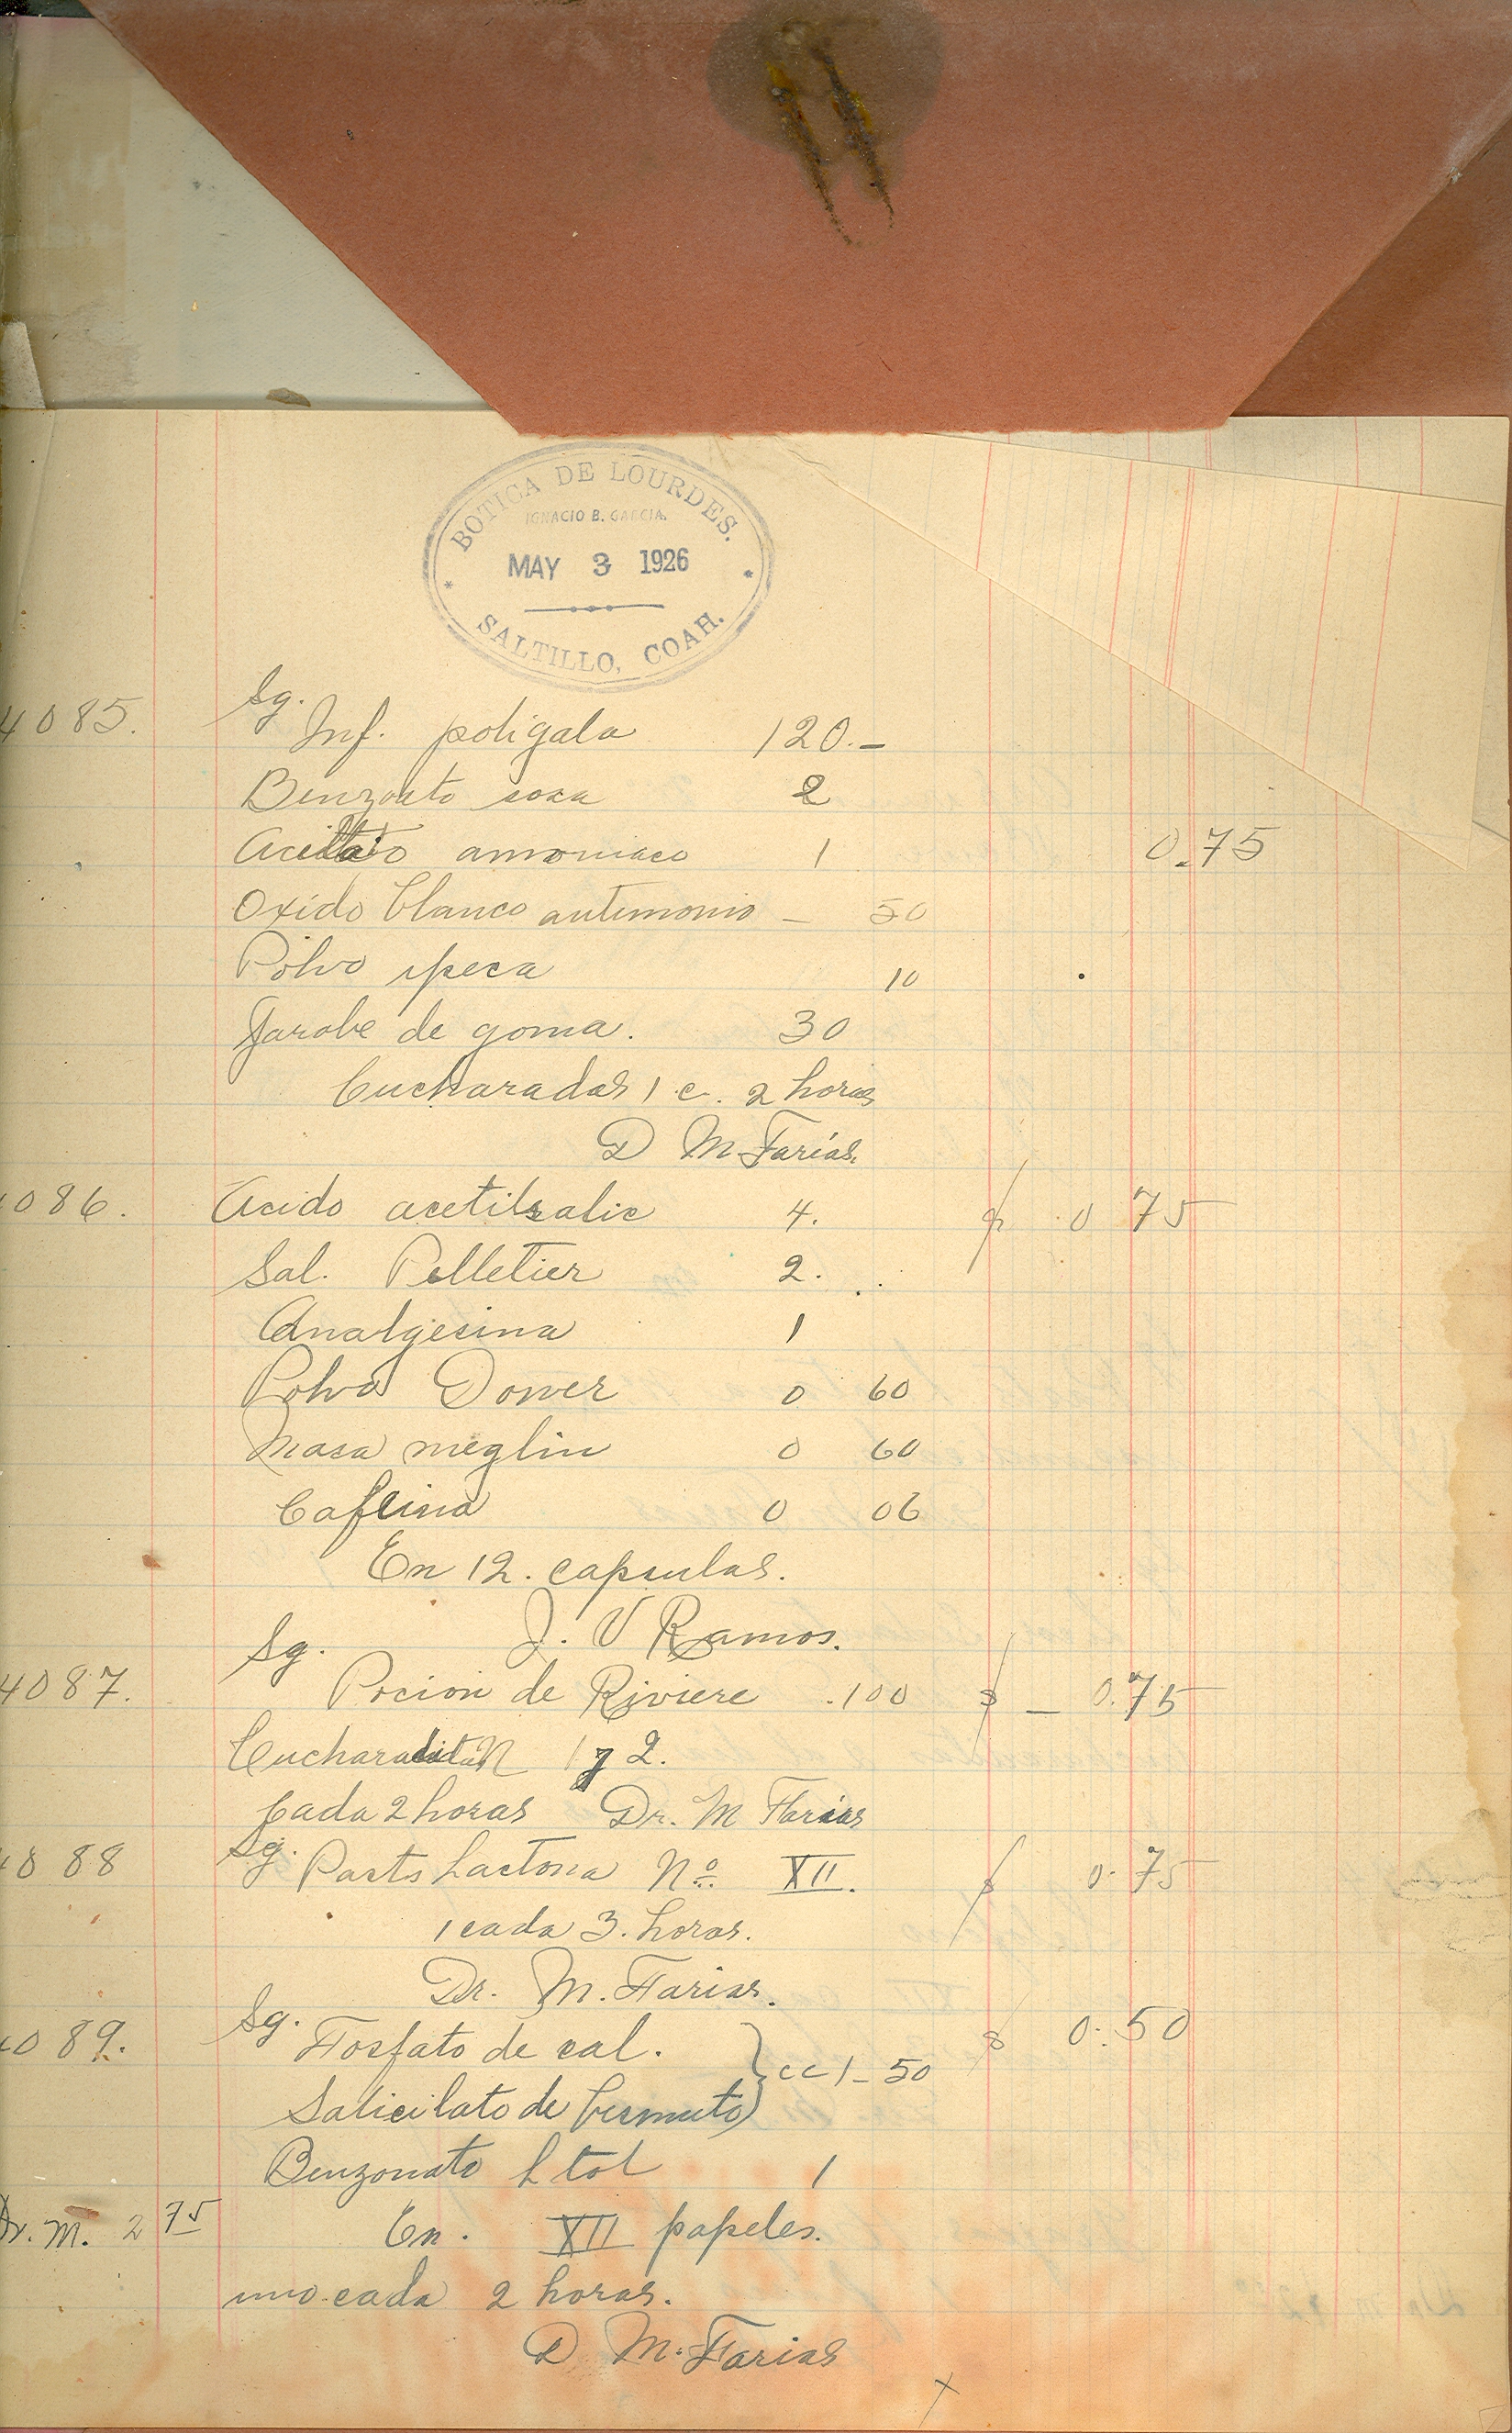 BOTICA DE LOURDES.
IGNACIO B. GARCIA.
MAY 3 1926
SALTILLO, COAH.
Sg.
4085. Inf. poligala 120.-
Benzoato sosa 2
Acetato amoniaco 1 0.75
Oxido blanco antimonio - 50
Polvo ipeca 10
Jarabe de goma. 30
Cucharadas 1 c. 2 horas
D M. Farías.
086. Acido acetilsalic 4. $ 0 75
Sal. Pelletier 2.
Analgesina 1
Polvo Dower 0 60
Masa meglin 0 60
Cafeina 0 06
En 12. capsulas.
J. V Ramos.
Sg.
4087. Pocion de Riviere .100 $ - 0.75
Cucharaditas 1 y 2.
Cada 2 horas Dr. M Farias
Sg.
4088 Parts Lactosa No. XII. $ 0.75
1 cada 3. horas.
Dr. M. Farias.
Sg.
4089. Fosfato de cal. $ 0.50
cc 1-50
Salicilato de bismuto
Benzonato 1
Dr. M. 2 75 En. XII papeles.
uno cada 2 horas.
D M. Farias
x